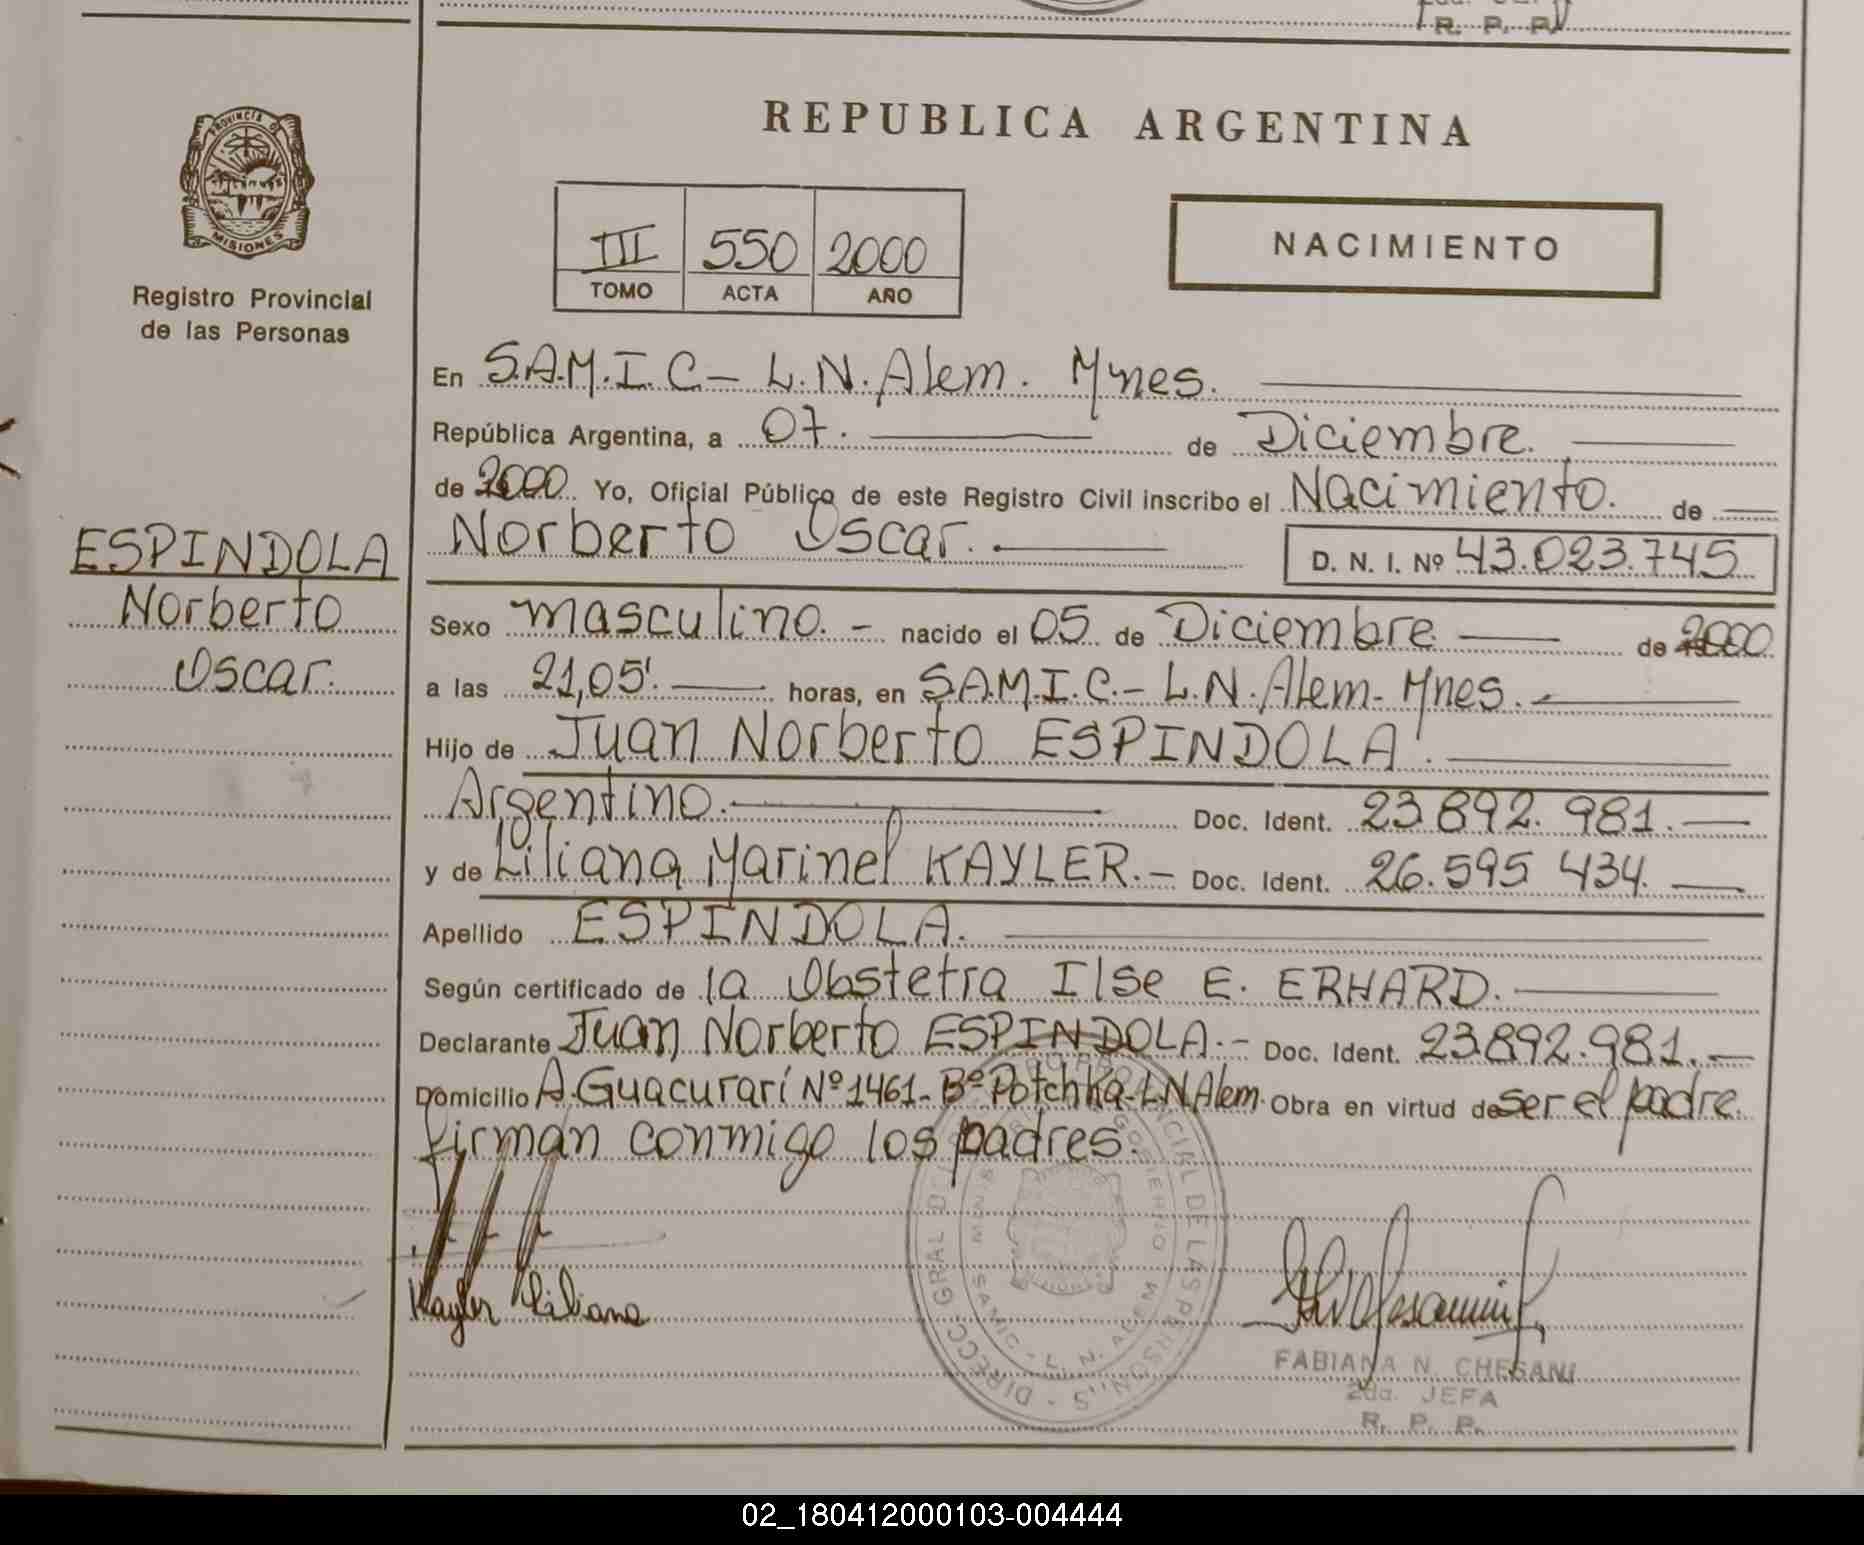 R. P. P.
PROVINCIA DE
MISIONES
Registro Provincial
de las Personas
ESPINDOLA
Norberto
Oscar.
REPUBLICA ARGENTINA
III 550 2000
TOMO ACTA AÑO
NACIMIENTO
En S.A.M.I.C - L.N. Alem. Mnes.
República Argentina, a 07. de Diciembre.
de 2000. Yo, Oficial Público de este Registro Civil inscribo el Nacimiento. de
Norberto Oscar. D. N. I. Nº 43.023.745
Sexo masculino. - nacido el 05 de Diciembre de 2000
a las 21,05'. horas, en S.A.M.I.C.- L.N. Alem- Mnes.
Hijo de Juan Norberto ESPINDOLA.
Argentino. Doc. Ident. 23.892.981.
y de Liliana Marinel KAYLER.- Doc. Ident. 26.595 434.
Apellido ESPINDOLA.
Según certificado de la Obstetra Ilse E. ERHARD.
Declarante Juan Norberto ESPINDOLA.- Doc. Ident. 23.892.981.
Domicilio A. Guacurarí Nº 1461- Bº Potchka-L.N Alem. Obra en virtud de ser el padre.
firman conmigo los padres.
Kayler Liliana
DIRECC. GRAL DEL REGISTRO PROVINCIAL DE LAS PERSONAS
SAMIC - L. N. ALEM
FABIANA N. CHESANI
2da. JEFA
R. P. P.
02_180412000103-004444